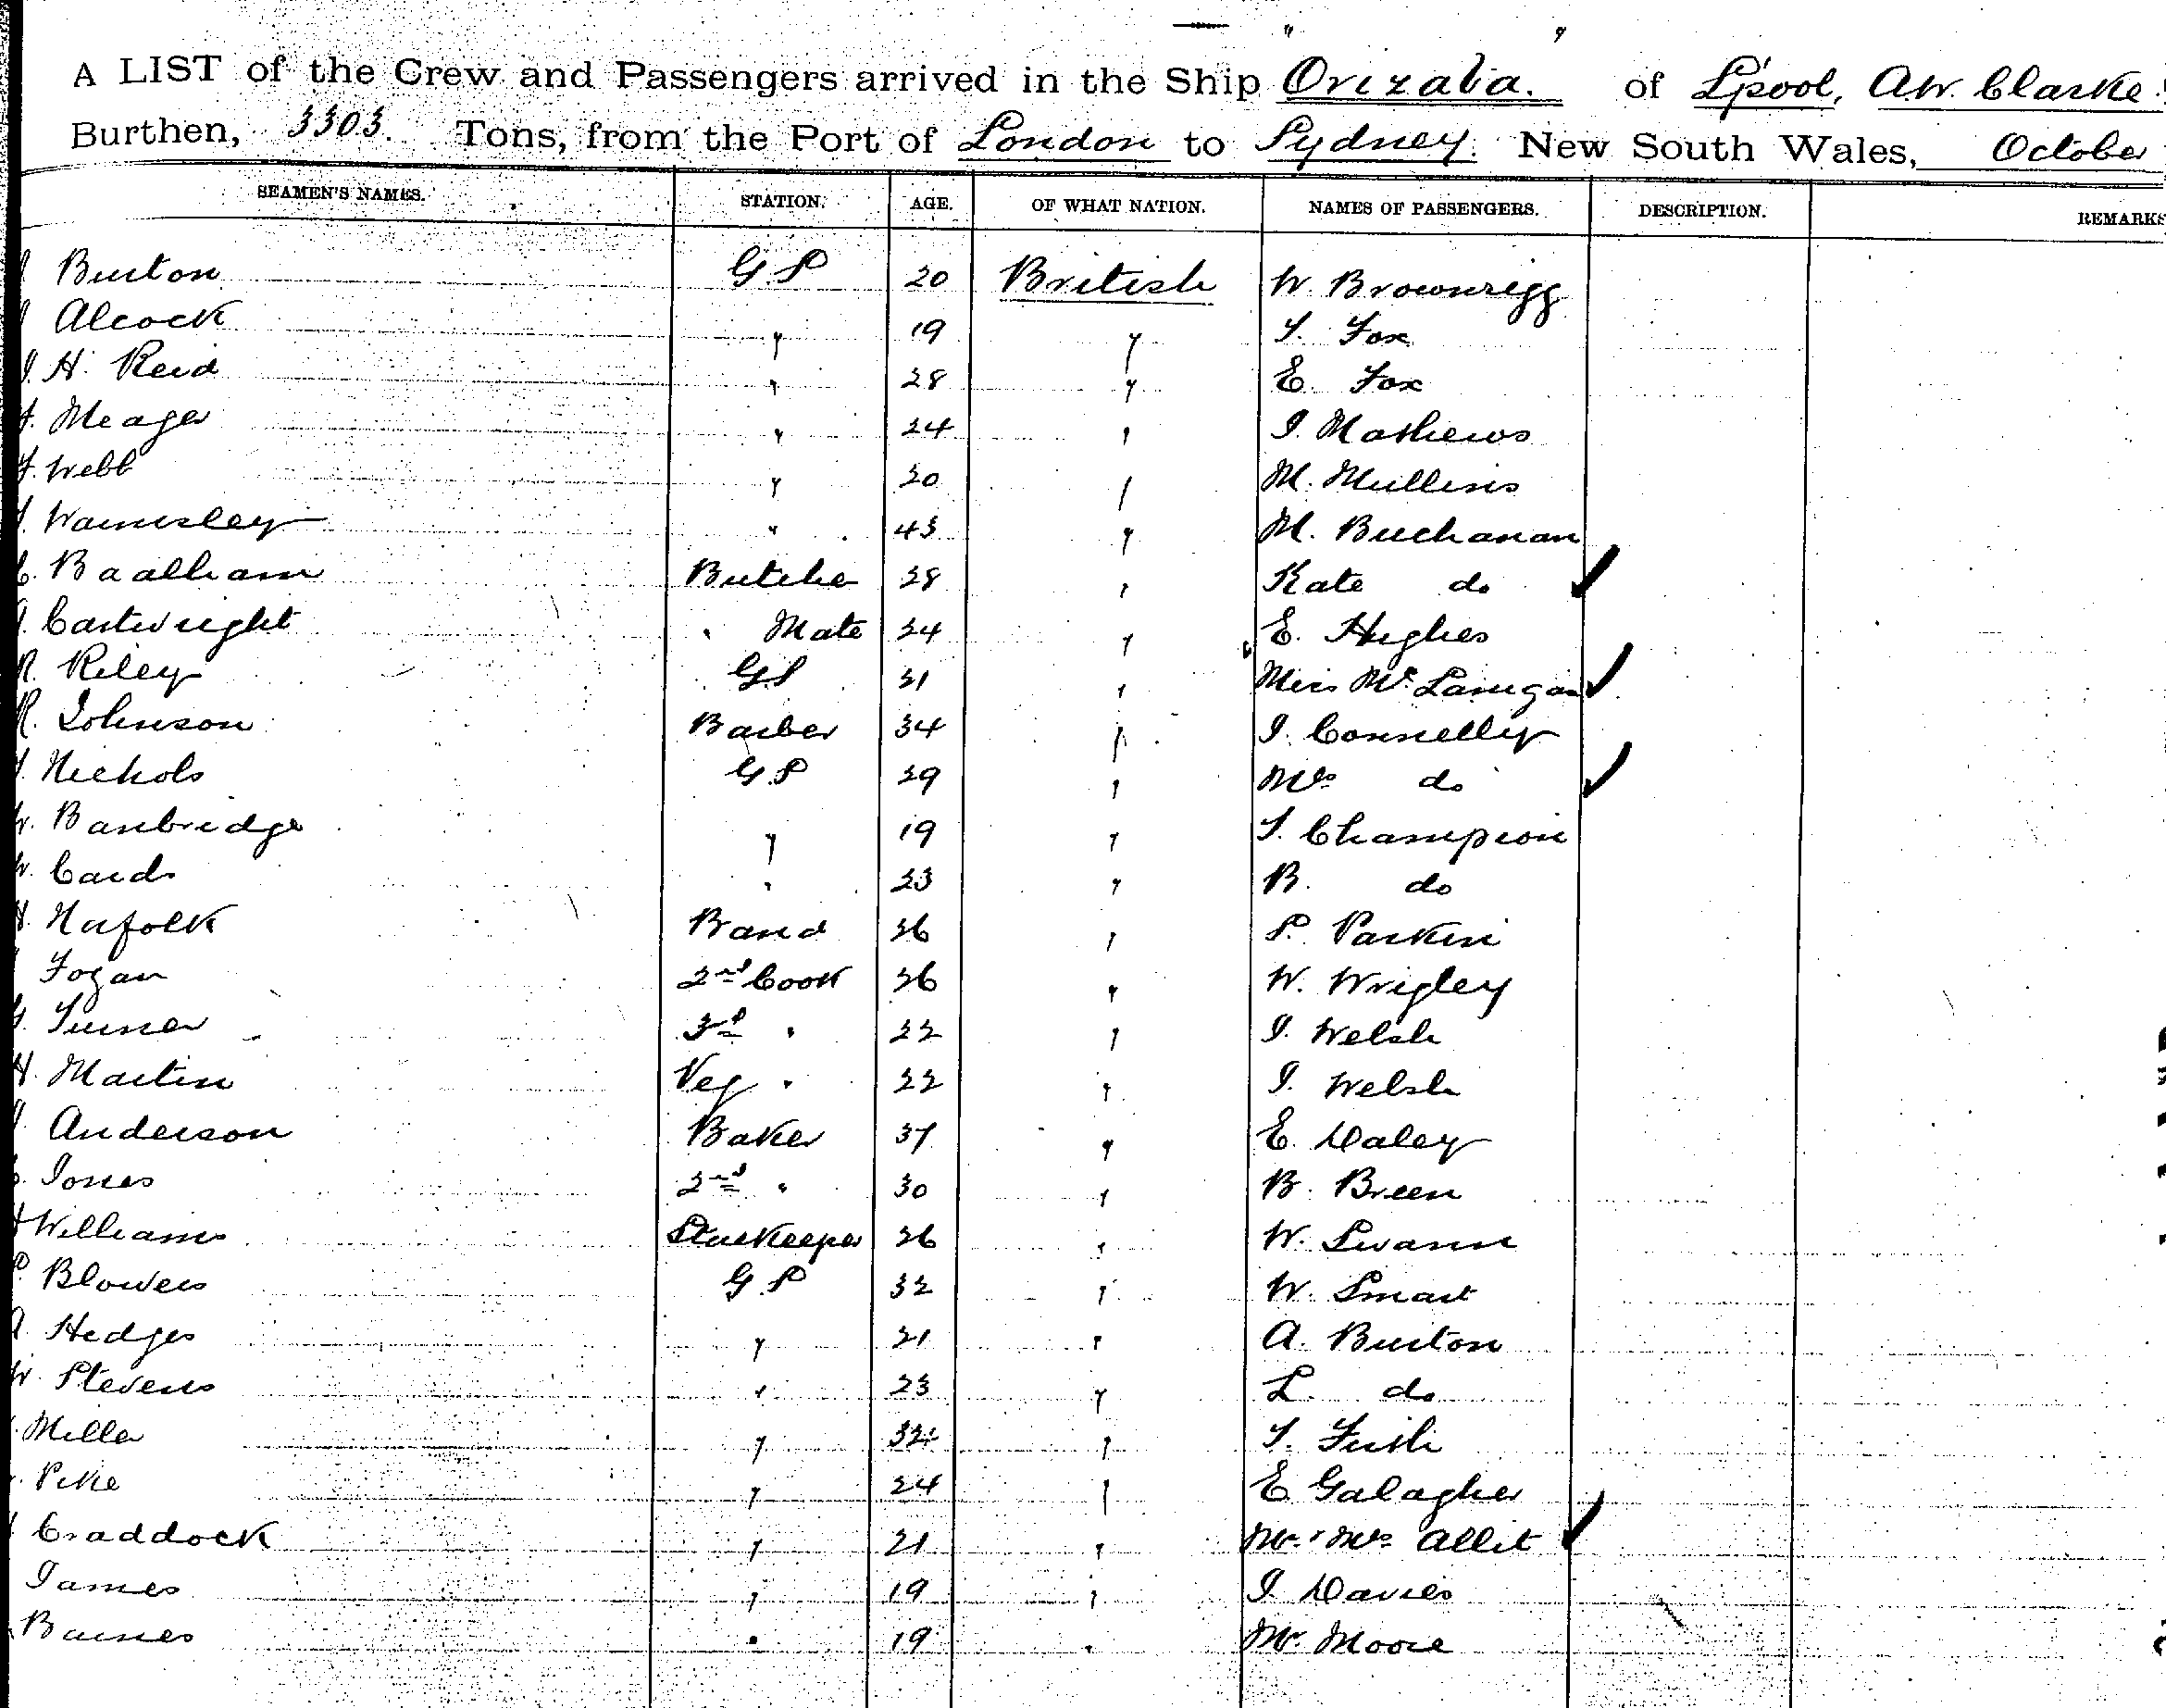 A LIST of the Crew and Passengers arrived in the Ship Orizaba. of L'pool, A.W. Clarke
Burthen, 3303 Tons, from the Port of London to Sydney. New South Wales, October
SEAMEN'S NAMES. STATION. AGE. OF WHAT NATION. NAMES OF PASSENGERS. DESCRIPTION. REMARKS
Burton G.S 20 British W. Brownrigg
Alcock " 19 " T. Fox
H. Reid " 28 " E. Fox
Meager " 24 " J. Mathews
Webb " 20 " M. Mullins
Wamsley " 43 " M. Buchanan
Baalham Butcher 28 " Kate do
Cartwright " Mate 24 " E. Hughes
R. Riley G.S 21 " Miss Mc Lanigan
R. Johnson Barber 34 " J. Connelly
Nichols G.S 29 " Mrs do
W. Banbridge " 19 " T. Champion
W. Cards " 23 " B. do
H. Norfolk Band 26 " P. Parkin
Fogan 2nd Cook 26 " W. Wrigley
G. Turner 3rd " 22 " J. Welsh
H. Martin Veg " 22 " J. Welsh
Anderson Baker 37 " E. Daley
Jones 2nd " 30 " B. Breen
Williams Storekeeper 26 " W. Swann
P. Blowers G.S 32 " W. Smart
A. Hedges " 21 " A. Burton
W. Stevens " 23 " L. do
Miller " 32 " T. Firth
Pike " 24 " E Galagher
Craddock " 21 " Mr. & Mrs. Allit
James " 19 " J Davies
Barnes " 19 " Mr. Moore